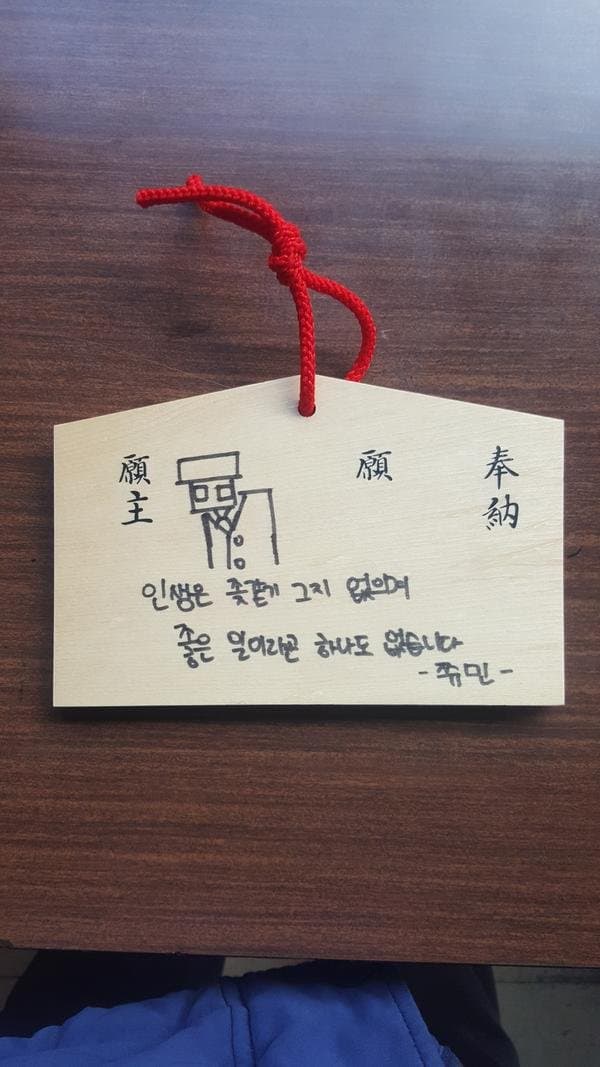 奉納
願
願主
인생은 좆같기 그지 없으며
좋은 일이라곤 하나도 없습니다
-쮸민-